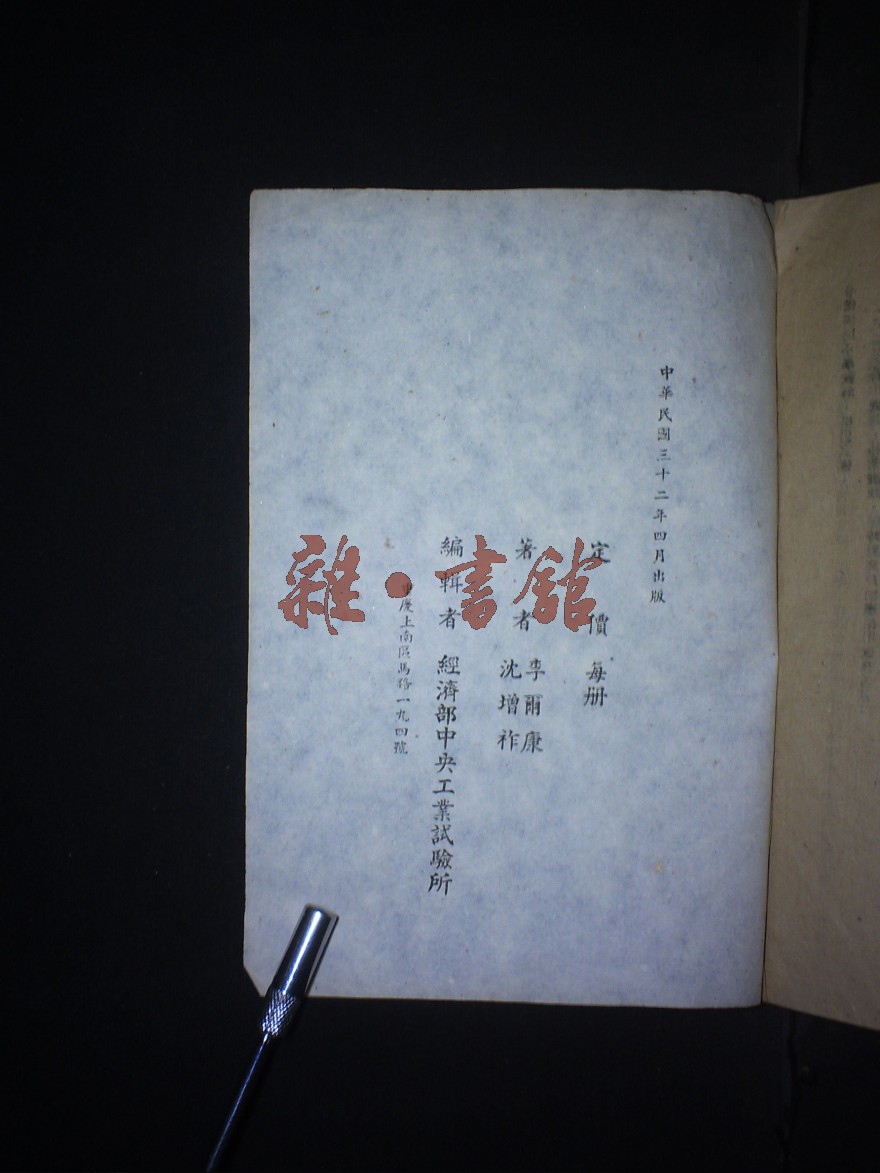 中華民國三十二年四月出版
定價 每册
著者 李爾康
沈增祚
編輯者 經濟部中央工業試驗所
重慶上南區馬路一九四號
雜·書館